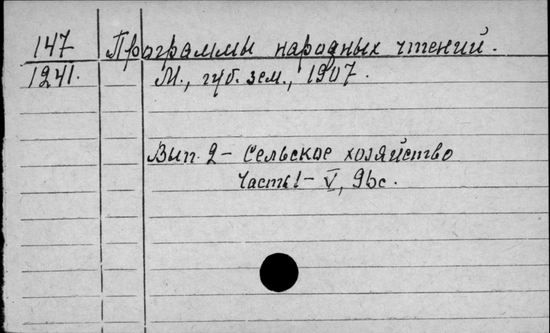 147 Программы народных чтений.
1241. М., губ. зем., 1907.
Вып. 2 - Сельское хозяйство
Часть I - V, 96 с.